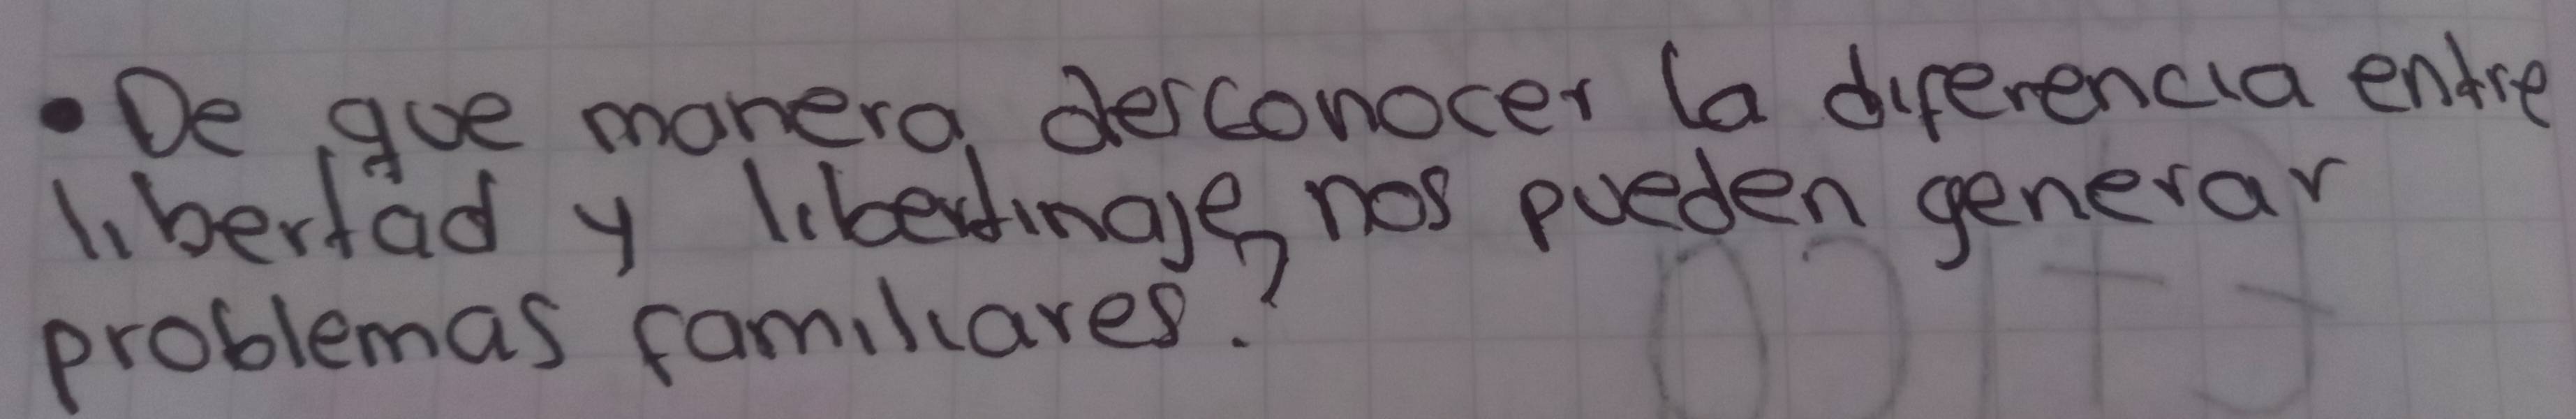 • De que manera desconocer la diferencia entre
libertad y libertinaje nos pueden generar
problemas familiares?